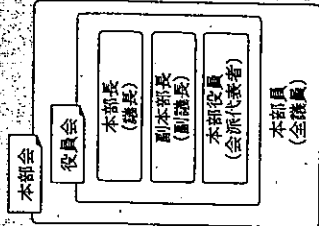 本部会
役員会
本部長
(議長)
副本部長
(副議長)
本部役員
(会派代表者)
本部員
(全議員)